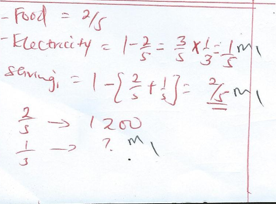 - Food = 2/5
- Electricity = 1 - 2/5 = 3/5 × 1/3 = 1/5 M1
Saving, = 1 - [2/5 + 1/5] = 2/5 M1
2/5 → 1200
1/5 → ? M1